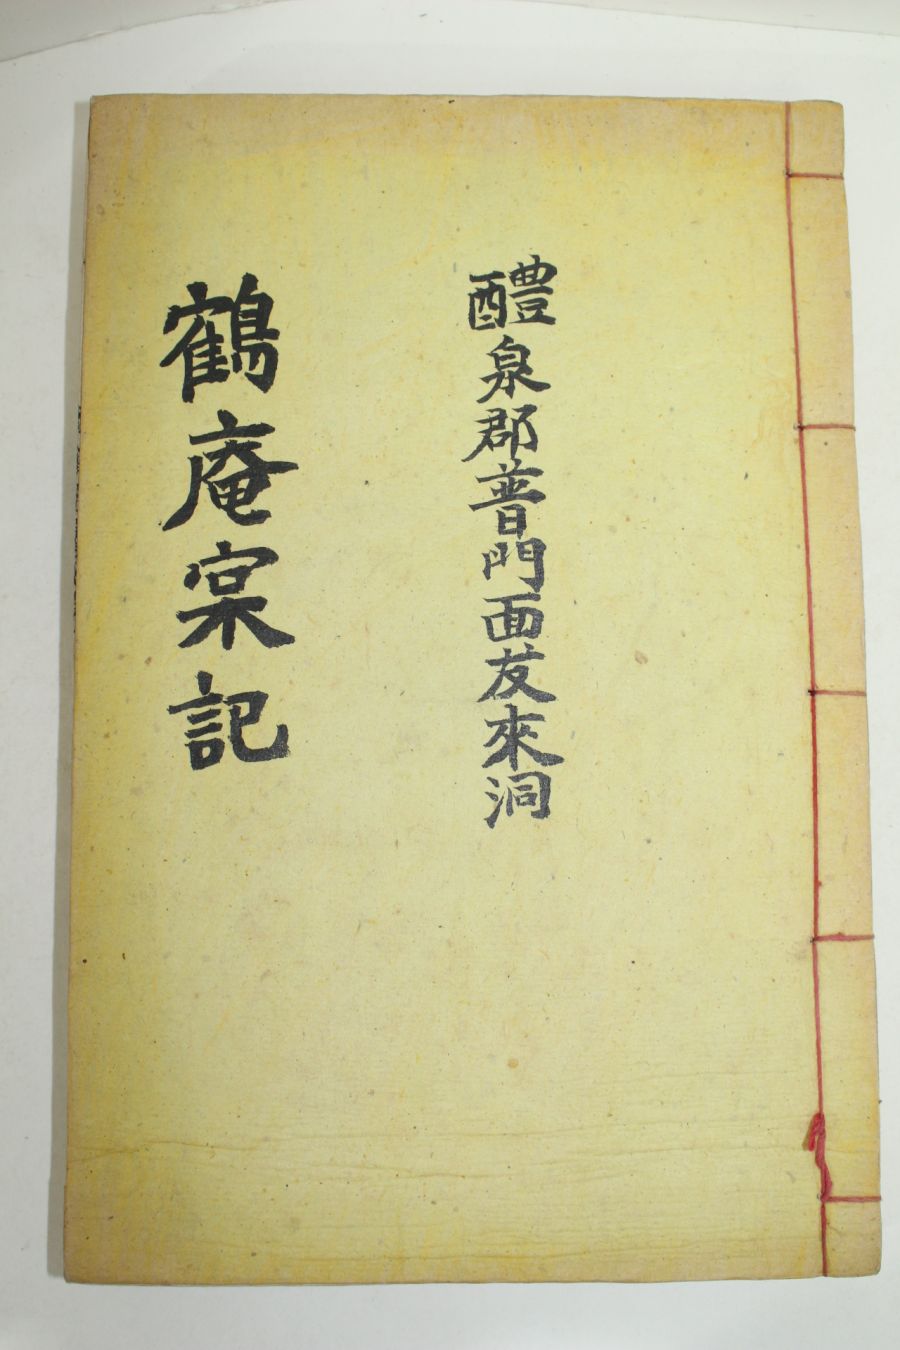 醴泉郡普門面苃來洞
鶴庵宲記